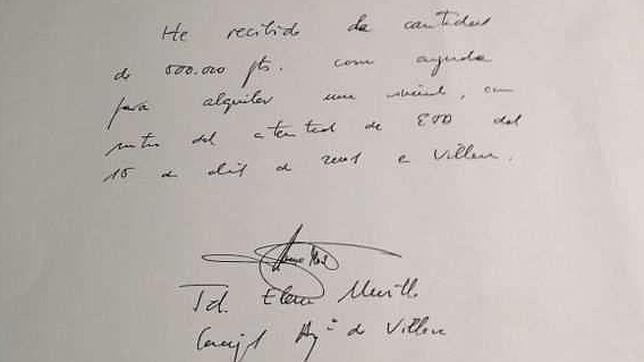 He recibido la cantidad
de 500.000 pts. como ayuda
para alquilar una vivienda, con
motivo del atentado de ETA del
15 de abril de 2001 a Villa
Fd. Elena Murillo
Concejal Ayº de Villa